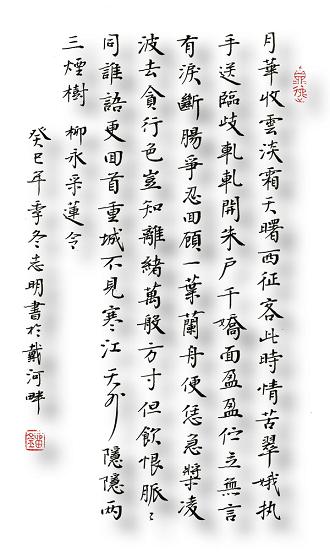 月華收雲淡霜天曙西征客此時情苦翠娥執
手送臨歧軋軋開朱戶千嬌面盈盈佇立無言
有淚斷腸爭忍回顧一葉蘭舟便恁急槳凌
波去貪行色豈知離緒萬般方寸但飲恨脈〻
同誰語更回首重城不見寒江天外隱隱兩
三煙樹 柳永采蓮令
癸巳年季冬志明書於戴河畔